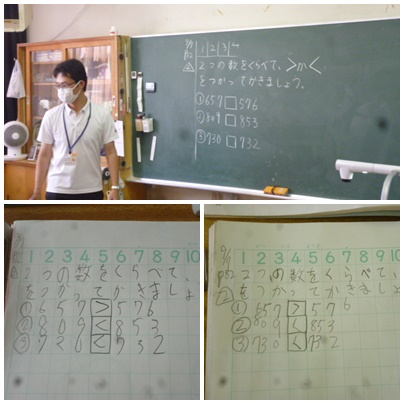 1 2 3
2つの数をくらべて、>か<
をつかってかきましょう。
①657□576
②809□853
③730□732
1 2 3 4 5 6 7 8 9 10
2つの数をくらべて、
をつかってかきましょ
①657>576
②809<853
③730<732
1 2 3 4 5 6 7 8 9 10
P52 2つの数をくらべて、
をつかってかきましょ
①657>576
②809<853
③730<732